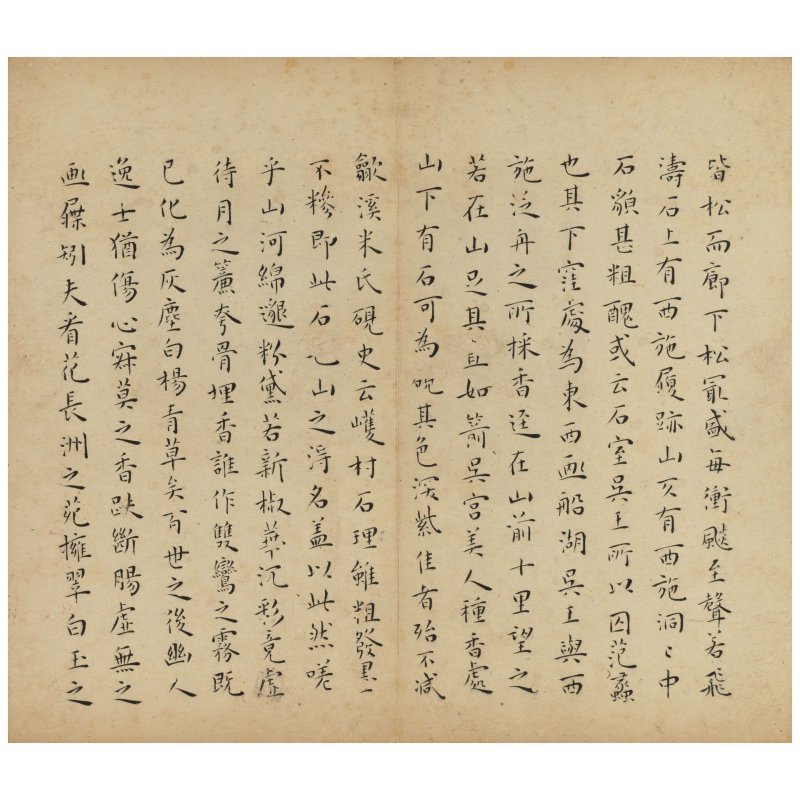 皆松而廊下松最盛每衝飈至聲若飛
濤石上有西施履跡山又有西施洞〻中
石貌甚粗醜或云石室吳王所以囚范蠡
也其下窪處為東西畫船湖吳王與西
施泛舟之所採香逕在山前十里望之
若在山足其直如箭吳宮美人種香處
山下有石可為硯其色深紫佳者殆不減
歙溪米氏硯史云巙村石理雖粗發墨
不糝即此石也山之得名蓋以此然嗟
乎山河綿邈粉黛若新椒華沉彩竟虛
待月之簾夸骨埋香誰作雙鸞之霧既
已化為灰塵白楊青草矣百世之後幽人
逸士猶傷心寂莫之香趺斷腸虛無之
畫屧矧夫看花長洲之苑擁翠白玉之